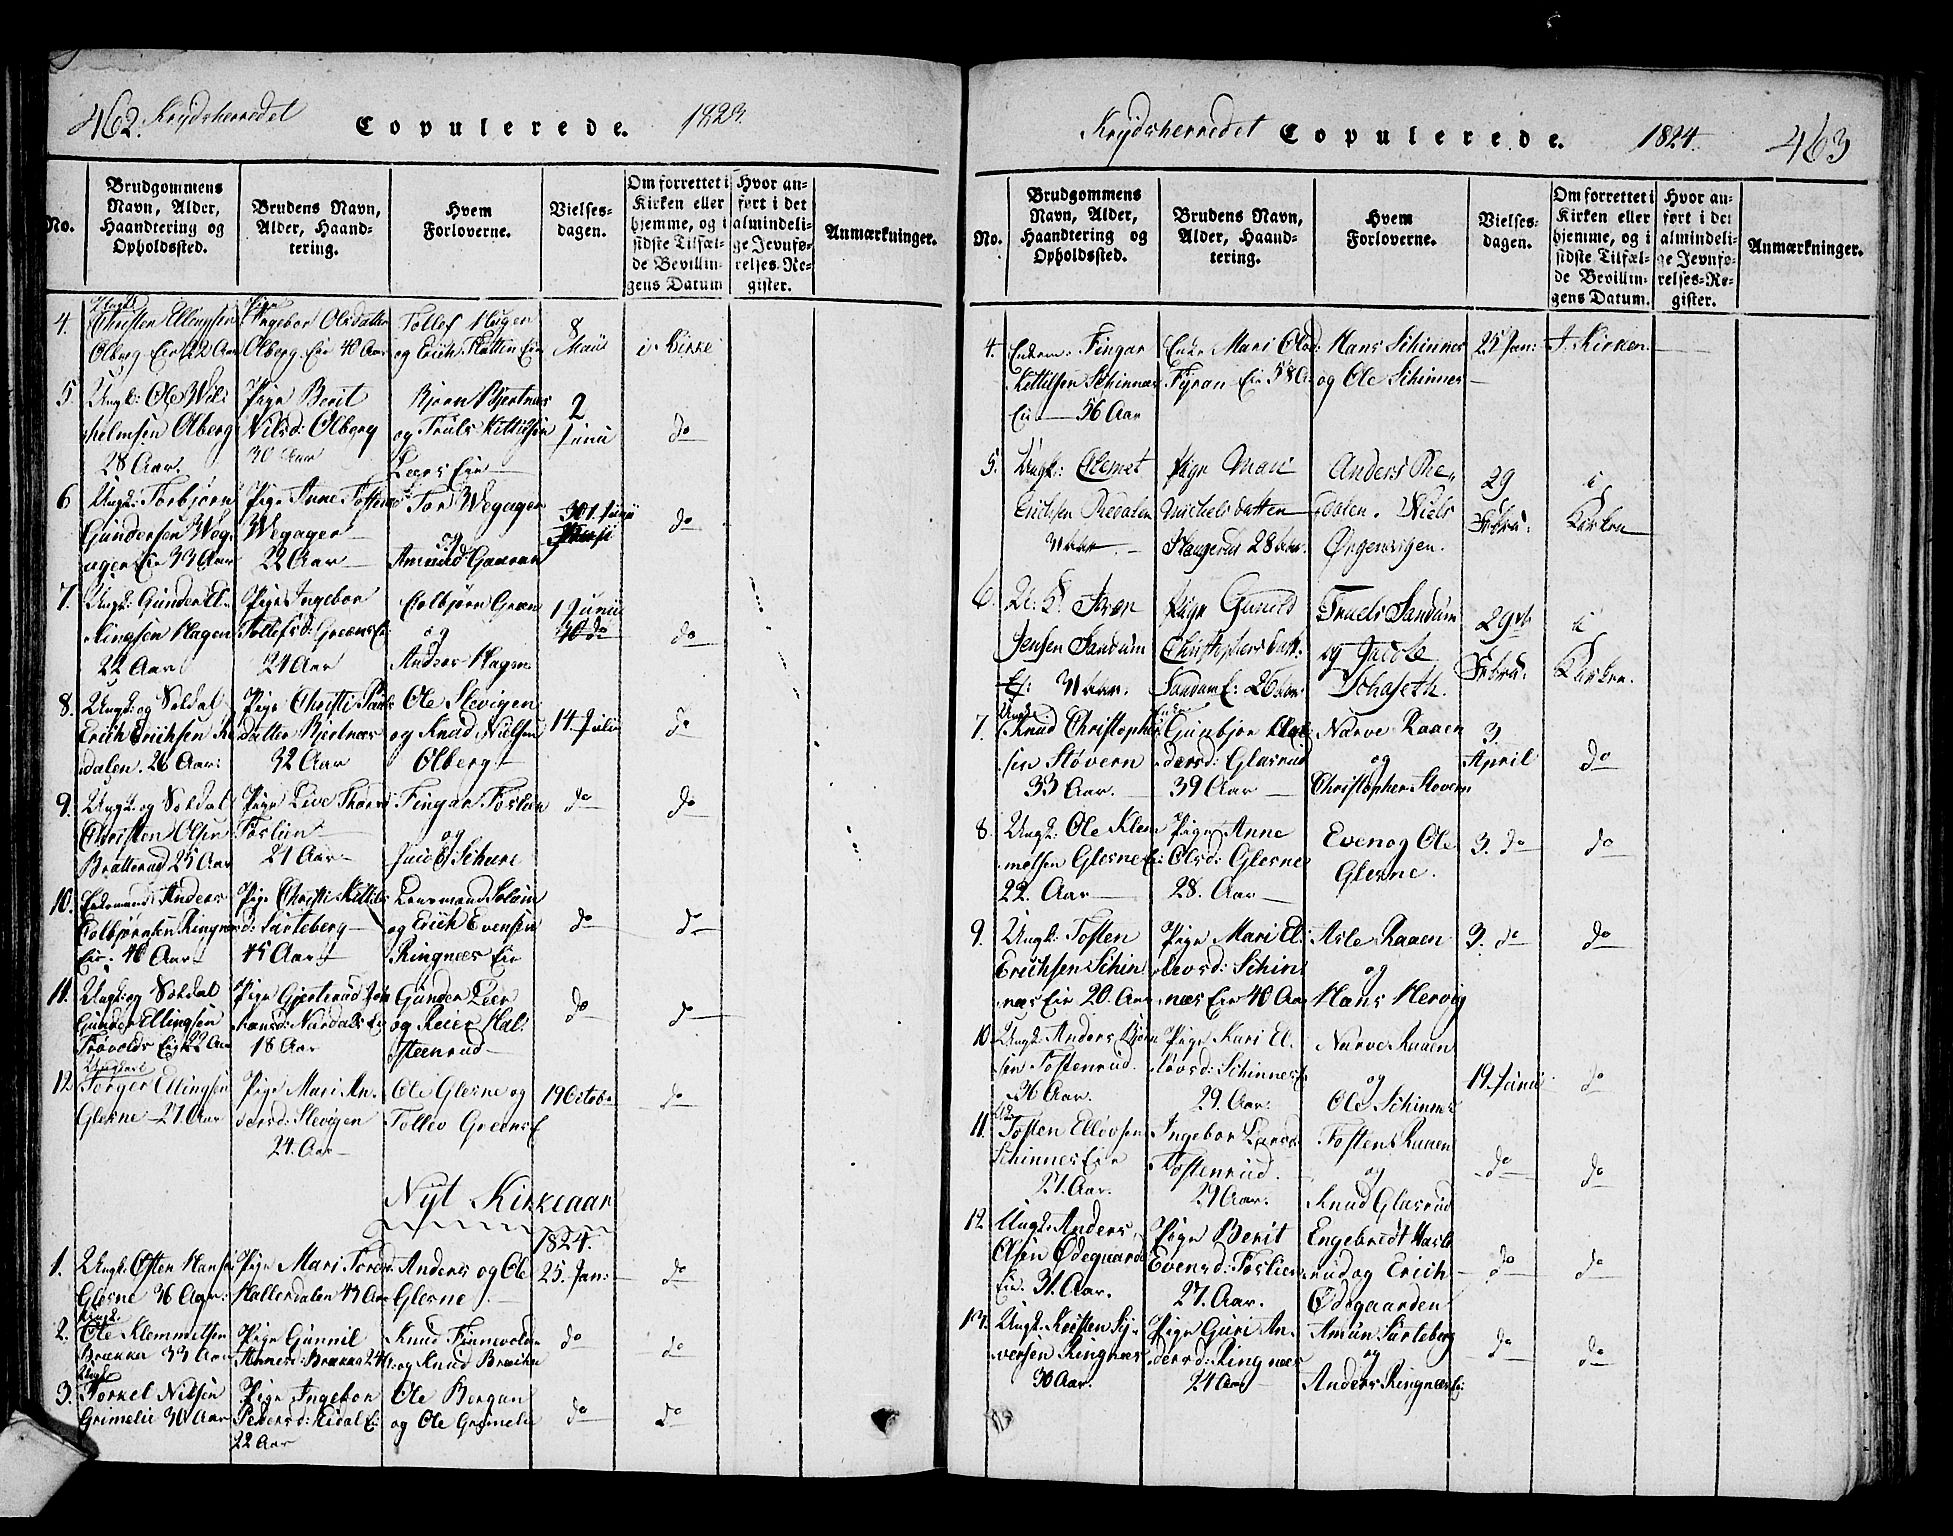 462. Krydsherredet Copulerede. 1823.
No.
Brudgommens
Navn, Alder,
Haandtering og
Opholdssted.
Brudens Navn,
Alder, Haand-
tering.
Hvem
Forloverne.
Vielses-
dagen.
Om forrettet i
Kirken eller
hjemme, og i
sidste Tilfæl-
de Bevillin-
gens Datum
Hvor an-
ført i det
almindeli-
ge Jevnfø-
relses-Re-
gister.
Anmærkninger.
4. Christen Ellingsen
Olberg Eie 22 Aar
Pige
Ingebor Olsdatter
Olberg Eie 40 Aar
Tollef Hagen
og Erich Slatten Eie
8
Maii
i Kirke
5. Ungk: Ole Wil
helmsen Olberg
28 Aar.
Pige Berit
Nilsd: Olberg
30 Aar
Bjørn Bjertnæs
og Truls Kittilsen
Leers Eie
2
Junii
do
6 Ungk: Torbjørn
Gundersen Weg-
ager Eie 33 Aar
Pige Anne Tostens
Wegager
22 Aar
Tor Wegager
og
Amund Gaaran
do
7. Ungk: Gunder El-
lingsen Hagen
22 Aar
Pige Ingebor
Tollefsd: Green Ei:
24 Aar
Colbjørn Green
og
Anders Hagen
1 Junii
30 do
do
8. Ungk: og Soldat
Erich Erichsen
dalen. 26 Aar:
Pige Christi Paals
datter Bjertnæs
32 Aar
Ole Slevigen
og Knud Nielsen
Olberg
14. Julii
do
9. Ungk: og Soldat
Christen Olsen
Bratterud 25 Aar
Pige Live Thords
Foslien
21 Aar
Fingar Foslien
og
Jacob Schure
do
do
10. Enkemand Anders
Colbjørnsen Ringnæs
Eie. 40 Aar
Pige Christi Kittils
d: Sarteberg
45 Aar
Lensmand Solum
og Erich Evensen
Ringnæs Eie
do
do
11. Ungk: og Soldat
Gunder Ellingsen
Trøvolds Eie 22 Aar
Pige Gjertrud
18 Aar
Gunder Leer
og Reier Hal-
steenrud
do
do
12. Ungkarl
Torger Ellingsen
Glesne 27. Aar
Pige Mari An-
dersd: Slevigen
24. Aar
Ole Glesne og
Tollev Greens E
19 Octobr
do
Nyt Kirkeaar
1824.
1. Ungk: Østen Hansen
Glesne 36 Aar:
Pige Mari Tords
Hallerdalen 43 Aar
Anders og Ole
Glesne
25. Jan:
do
2. Ungk:
Ole Klemmetsen
Brække 33 Aar
Pige Gunnil
Arnesd: Brække 24
Knud Finnevolden
og Knud Brække
do
do
3. Ungk
Torkel Nilsen
Grimelie 30 Aar
Pige Ingebor
Pedersd: Eidal E:
22 Aar
Ole Bergan
og Ole Grimelie
do
do
Krydsherredet Copulerede. 1824. 463
No.
Brudgommens
Navn, Alder,
Haandtering og
Opholdssted.
Brudens Navn,
Alder, Haand-
tering.
Hvem
Forloverne.
Vielses-
dagen.
Om forrettet i
Kirken eller
hjemme, og i
sidste Tilfæl-
de Bevillin-
gens Datum.
Hvor an-
ført i det
almindeli-
ge Jevnfø-
relses-Re-
gister.
Anmærkninger.
4. Enkem: Fingar
Kittilsen Schinnes
Eie 56 Aar
Enke Mari Olsd:
Fyran Eie 58 A
Hans Schinnes
og Ole Schinnes
25 Jan:
I. Kirken
5. Ungk: Clemet
Erichsen Redalen
Pige Mari
Michelsdatter
Slaagerud 28
Anders Re-
dalen. Niels
Ørgenvigen.
29
Febru:
i
Kirken
6. U. k. Iver
Jensen Sandum
Pige Gunild
Christophersdatt:
Sandum E: 26
Truels Sandum
og Jacob
Schaseth.
29de
Febru:
i
Kirken.
7. Ungk:
Knud Christopher
sen Støvern
33 Aar.
Enke
Gunbjør
dersd: Glasrud
39 Aar
Narve Raaen
og
Christopher Støvern
3.
April
do
8. Ungk: Ole Klem
metsen Glesne E:
22. Aar
Pige Anne
Olsd: Glesne
28. Aar
Even og Ole
Glesne.
3. do
do
9. Ungk: Tosten
Erichsen Schin
næs Eie 20. Aar
Pige Mari El:
levsd: Schin
næs Eie 40 Aar
Asle Raaen
og
Hans Hervig
3. do
do
10. Ungk: Anders Bjørn
sen Tostenrud.
36 Aar.
Pige Kari El.
løvsd: Schinnes E
29. Aar.
Narve Raaen
og
Ole Schinnes
19. Junii
do
11. Tosten Elløvsen
Schinnes Eie
27. Aar.
Ingebor Larsd
Tostenrud.
29 Aar.
Tosten Raaen
og
Knud Glasrud
do
do
12. Ungk: Anders
Olsen Ødegaards
Eie. 31. Aar.
Pige Berit
Evensd: Foslien
27. Aar.
Engebredt Hasle
rud og Erich
Ødegaarden
do
do
13. Ungk: Kristen Sy-
versen Ringnæs
30 Aar.
Pige Guri An-
dersd: Ringnæs
24 Aar
Amun Sarteberg
og
Anders Ringnæs E:
do
do